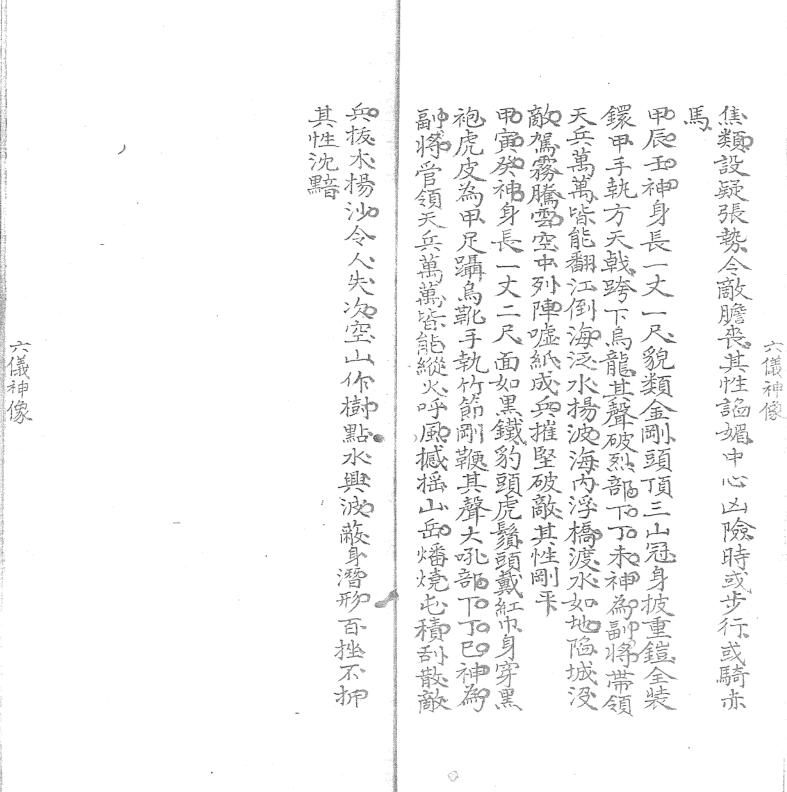 六儀神像
焦類設疑張勢令敵膽喪其性諂媚中心凶險時或步行或騎赤
馬
甲辰壬神身長一丈一尺貌類金剛頭頂三山冠身披重鎧全裝
鐶甲手執方天戟跨下烏龍其聲破烈部下丁未神為副將帶領
天兵萬萬皆能翻江倒海泛水揚波海內浮橋渡水如地陷城沒
敵駕霧騰雲空中列陣噓紙成兵摧堅破敵其性剛平
甲寅癸神身長一丈二尺面如黑鐵豹頭虎鬚頭戴紅巾身穿黑
袍虎皮為甲足躡烏靴手執竹節剛鞭其聲大吼部下丁巳神為
副將管領天兵萬萬皆能縱火呼風撼搖山岳燔燒屯積刮散敵
兵拔木揚沙令人失次空山作樹點水興波蔽身潛形百挫不抑
其性沈黯
六儀神像